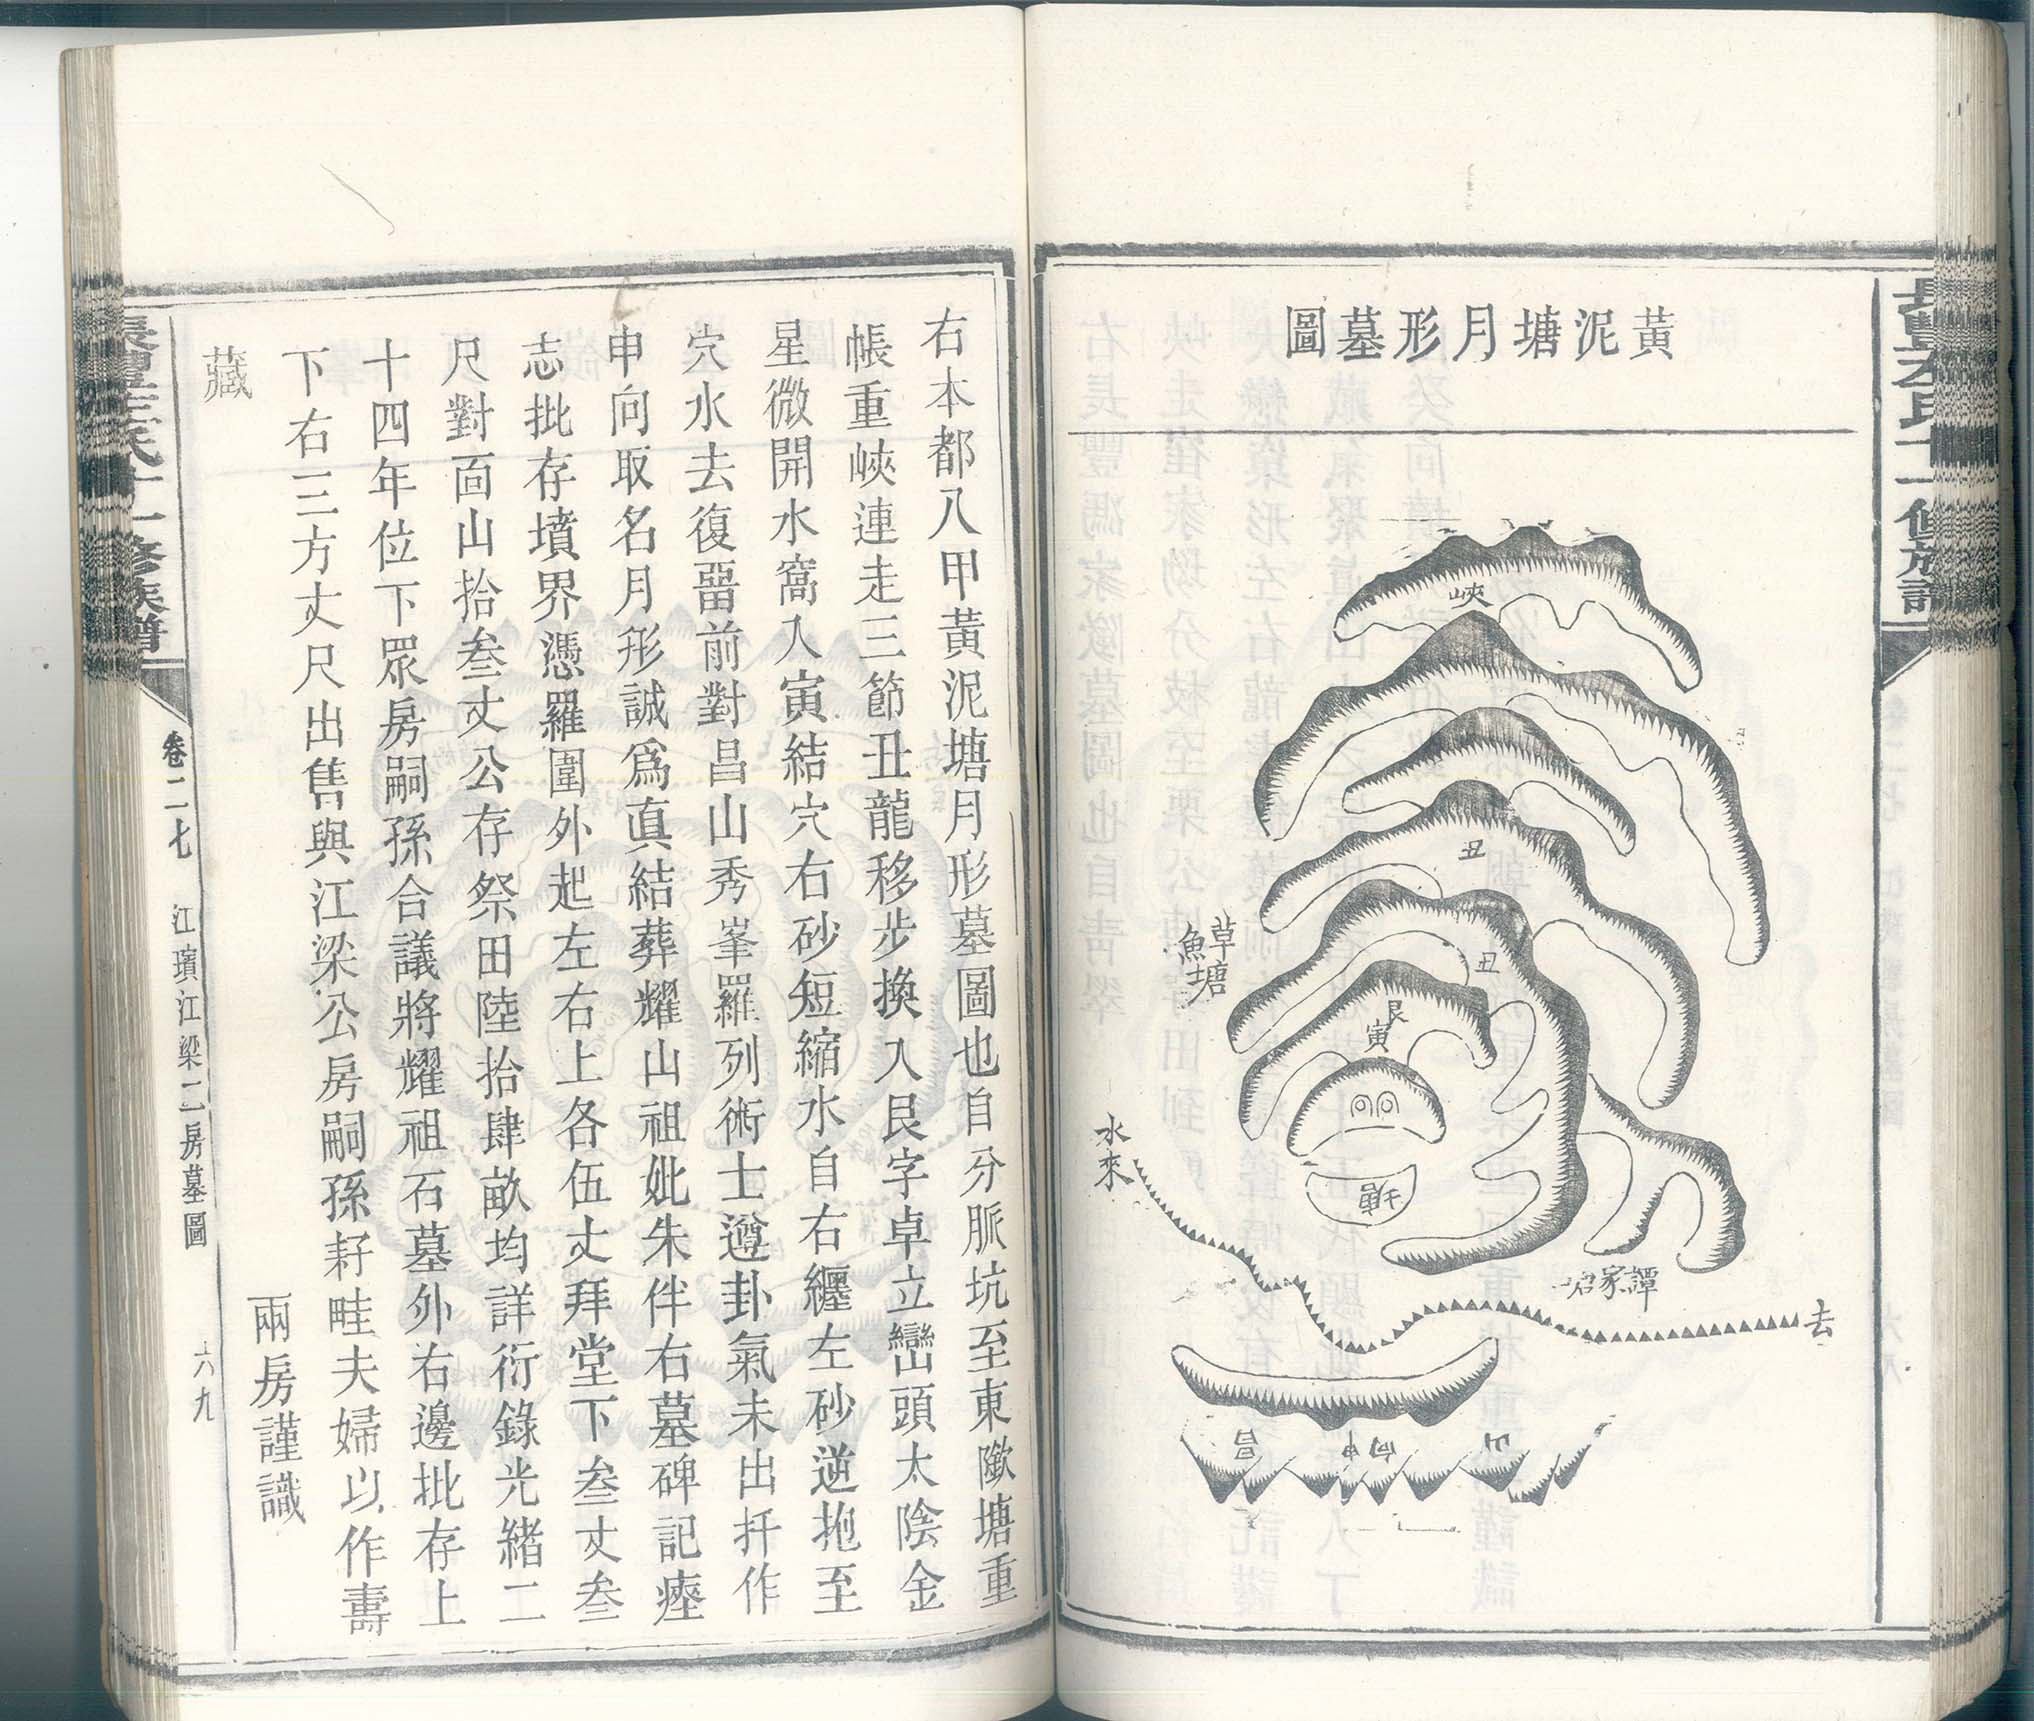 黃泥塘月形墓圖
峽
丑
丑
艮
寅
草
魚塘
水來
譚家
去
昌
右本都八甲黃泥塘月形墓圖也自分脈坑至東墩塘重
帳重峽連走三節丑龍移步換入艮字卓立巒頭太陰金
星微開水窩入寅結穴右砂短縮水自右纏左砂逆抱至
穴水去復畱前對昌山秀峯羅列術士遵卦氣未出扦作
申向取名月形誠爲真結葬耀山祖妣朱伴右墓碑記瘞
志批存墳界憑羅圍外起左右上各伍丈拜堂下叁丈叁
尺對面山拾叁丈公存祭田陸拾肆畝均詳衍錄光緒二
十四年位下眾房嗣孫合議將耀祖石墓外右邊批存上
下右三方丈尺出售與江梁公房嗣孫耔畦夫婦以作壽
藏
兩房謹識
卷二七
江璸江梁二房墓圖
六九